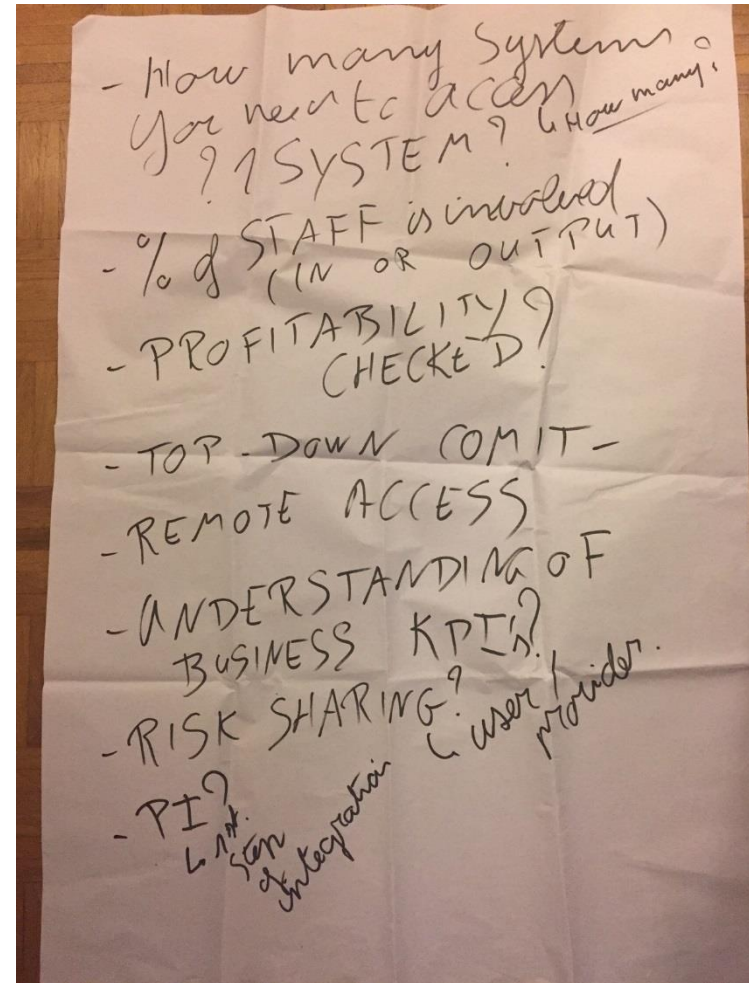 - How many Systems
you need to access
? 1 SYSTEM? ↳ How many?
- % of STAFF is involved
(IN OR OUTPUT)
- PROFITABILITY?
CHECKED?
- TOP-DOWN COMIT-
- REMOTE ACCESS
- UNDERSTANDING OF
BUSINESS KPI's?
- RISK SHARING?
↳ user / 
provider.
- PI?
↳ 1st.
step
of
integration